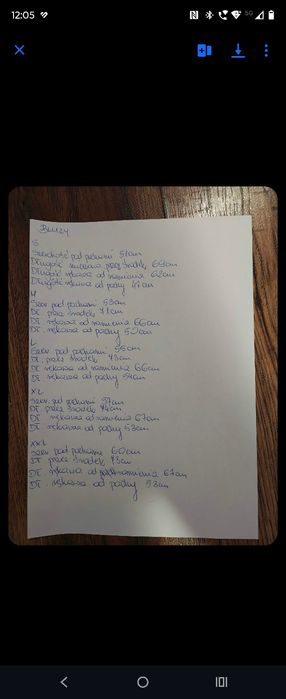 12:05
5G
BLUZY
S
Szerokość pod pachami 51cm
Długość mierzona przez środek 69cm
Długość rękawa od ramienia 62cm
Długość rękawa od pachy
M
Szer pod pachami 53cm
Dł. przez środek 71cm
Dł. rękawa od ramienia 66cm
Dł. rękawa od pachy 50cm
L
Szer. pod pachami 55cm
Dł. przez środek 73cm
Dł rękawa od ramienia 66cm
Dł. rękawa od pachy
XL
Szer. pod pachami 57cm
Dł. przez środek 74cm
Dł. rękawa od ramienia 67cm
Dł. rękawa od pachy 53cm
XXL
Szer pod pachami 60cm
Dł przez środek 75cm
Dł. rękawa od ramienia 67cm
Dł. rękawa od pachy 53cm